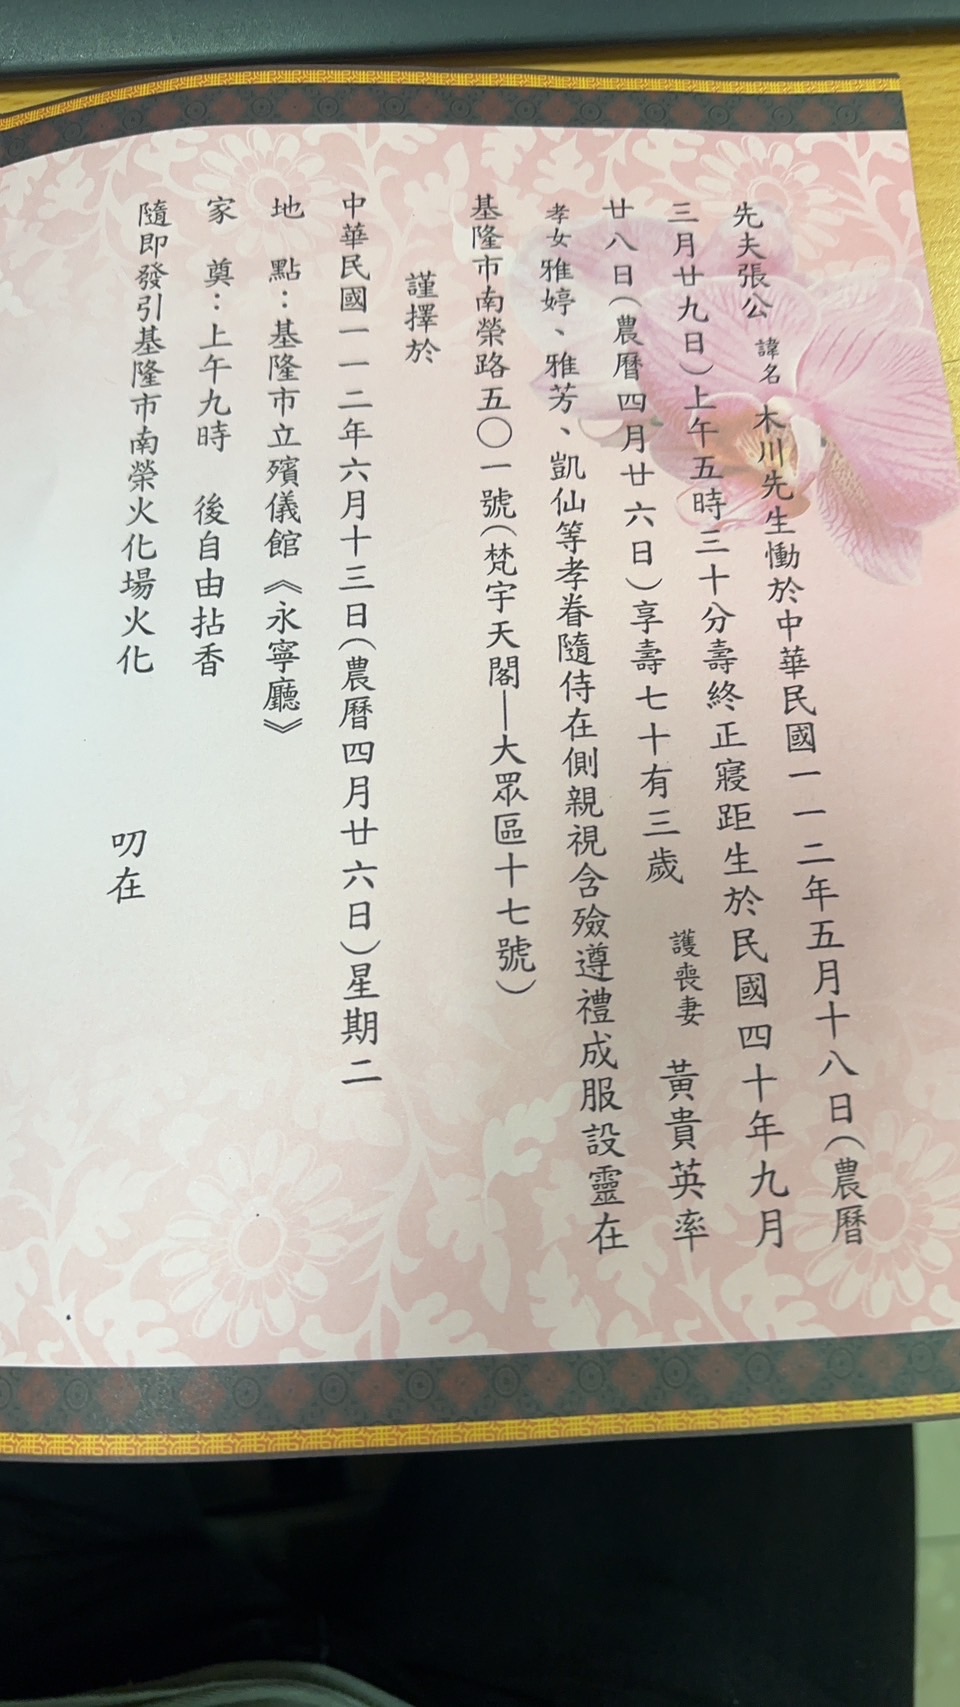 先夫張公 諱名 木川先生慟於中華民國一一二年五月十八日(農曆
三月廿九日)上午五時三十分壽終正寢距生於民國四十年九月
廿八日(農曆四月廿六日)享壽七十有三歲 護喪妻 黃貴英率
孝女雅婷、雅芳、凱仙等孝眷隨侍在側親視含殮遵禮成服設靈在
基隆市南榮路五〇一號(梵宇天閣—大眾區十七號)
謹擇於
中華民國一一二年六月十三日(農曆四月廿六日)星期二
地 點：基隆市立殯儀館《永寧廳》
家 奠：上午九時 後自由拈香
隨即發引基隆市南榮火化場火化
叨在